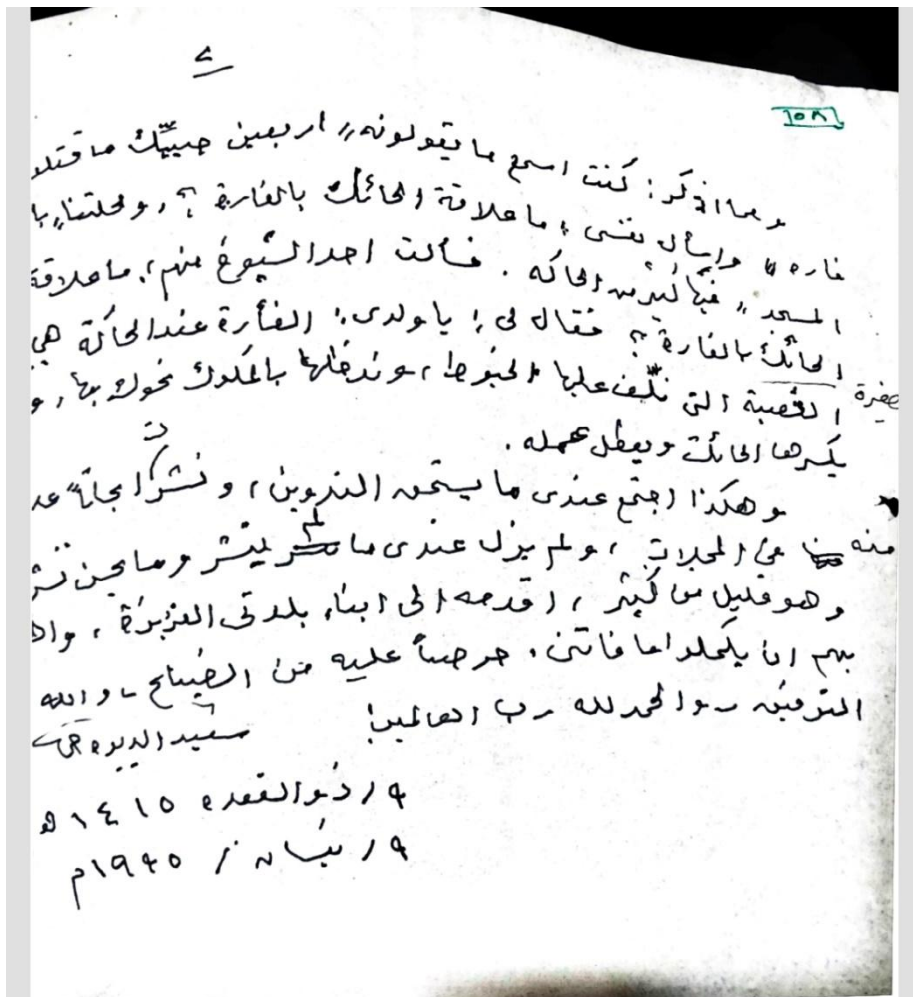 ٢
٦٥٨
ومما اذكر: كنت اسمع ما يقولونه "اربعين حييّك ما قتلو
فاره" واسأل نفسي؛ ما علاقة الحائك بالفارة؟، ومحلتنا "با
المسجد" فيها كثير من الحاكه. فسألت احد الشيوخ منهم؛ ما علاقة
الحائك بالفارة؟ فقال لي؛ يا ولدي؛ الفأرة عند الحاكة هي
القصبة التي نلّف عليها الخيوط، وندخلها بالمكوك نحوك بها، و
صغيرة
يكسرها الحائك ويعطل عمله.
وهكذا اجتمع عندي ما يستحق التدوين، ونشرت ابحاثاً عد
منه في المجلات، ولم يزل عندي ما لم ينشر وما يحسن نشر
وهو قليل من كثير، اقدمه الى ابناء بلدتي العزيزة، واه
بهم ان يكملوا ما فاتني. حرصاً عليه من الضياع - والله
التوفيق - والحمد لله رب العالمين!
سعيد الديوه جي
٩ / ذو القعدة ١٤١٥ هـ
٩ / نيسان / ١٩٩٥م